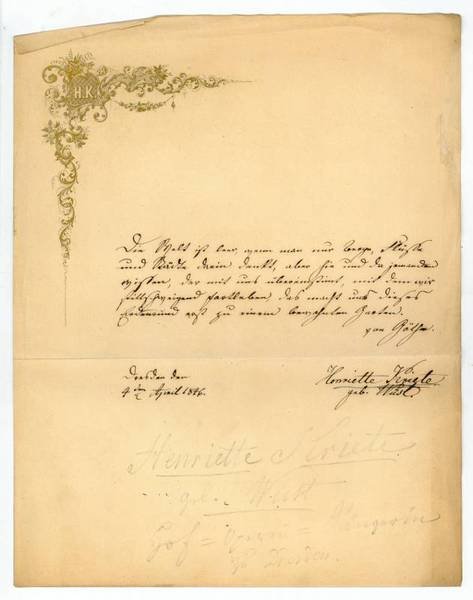 H.K.
Die Welt ist leer, wenn man nur Berge, Flüsse
und Städte darin denkt, aber hie und da jemanden
wissen, der mit uns übereinstimt, mit dem wir
stillschweigend fortleben das macht uns dieses
Erdenrund erst zu einem bewohnten Garten.
von Göthe.
Dresden den
4 April 1846.
Henriette Kriete
geb. Wüst
Henriette Kriete
geb. Wüst
Hof = Opern = Sängerin
zu Dresden.